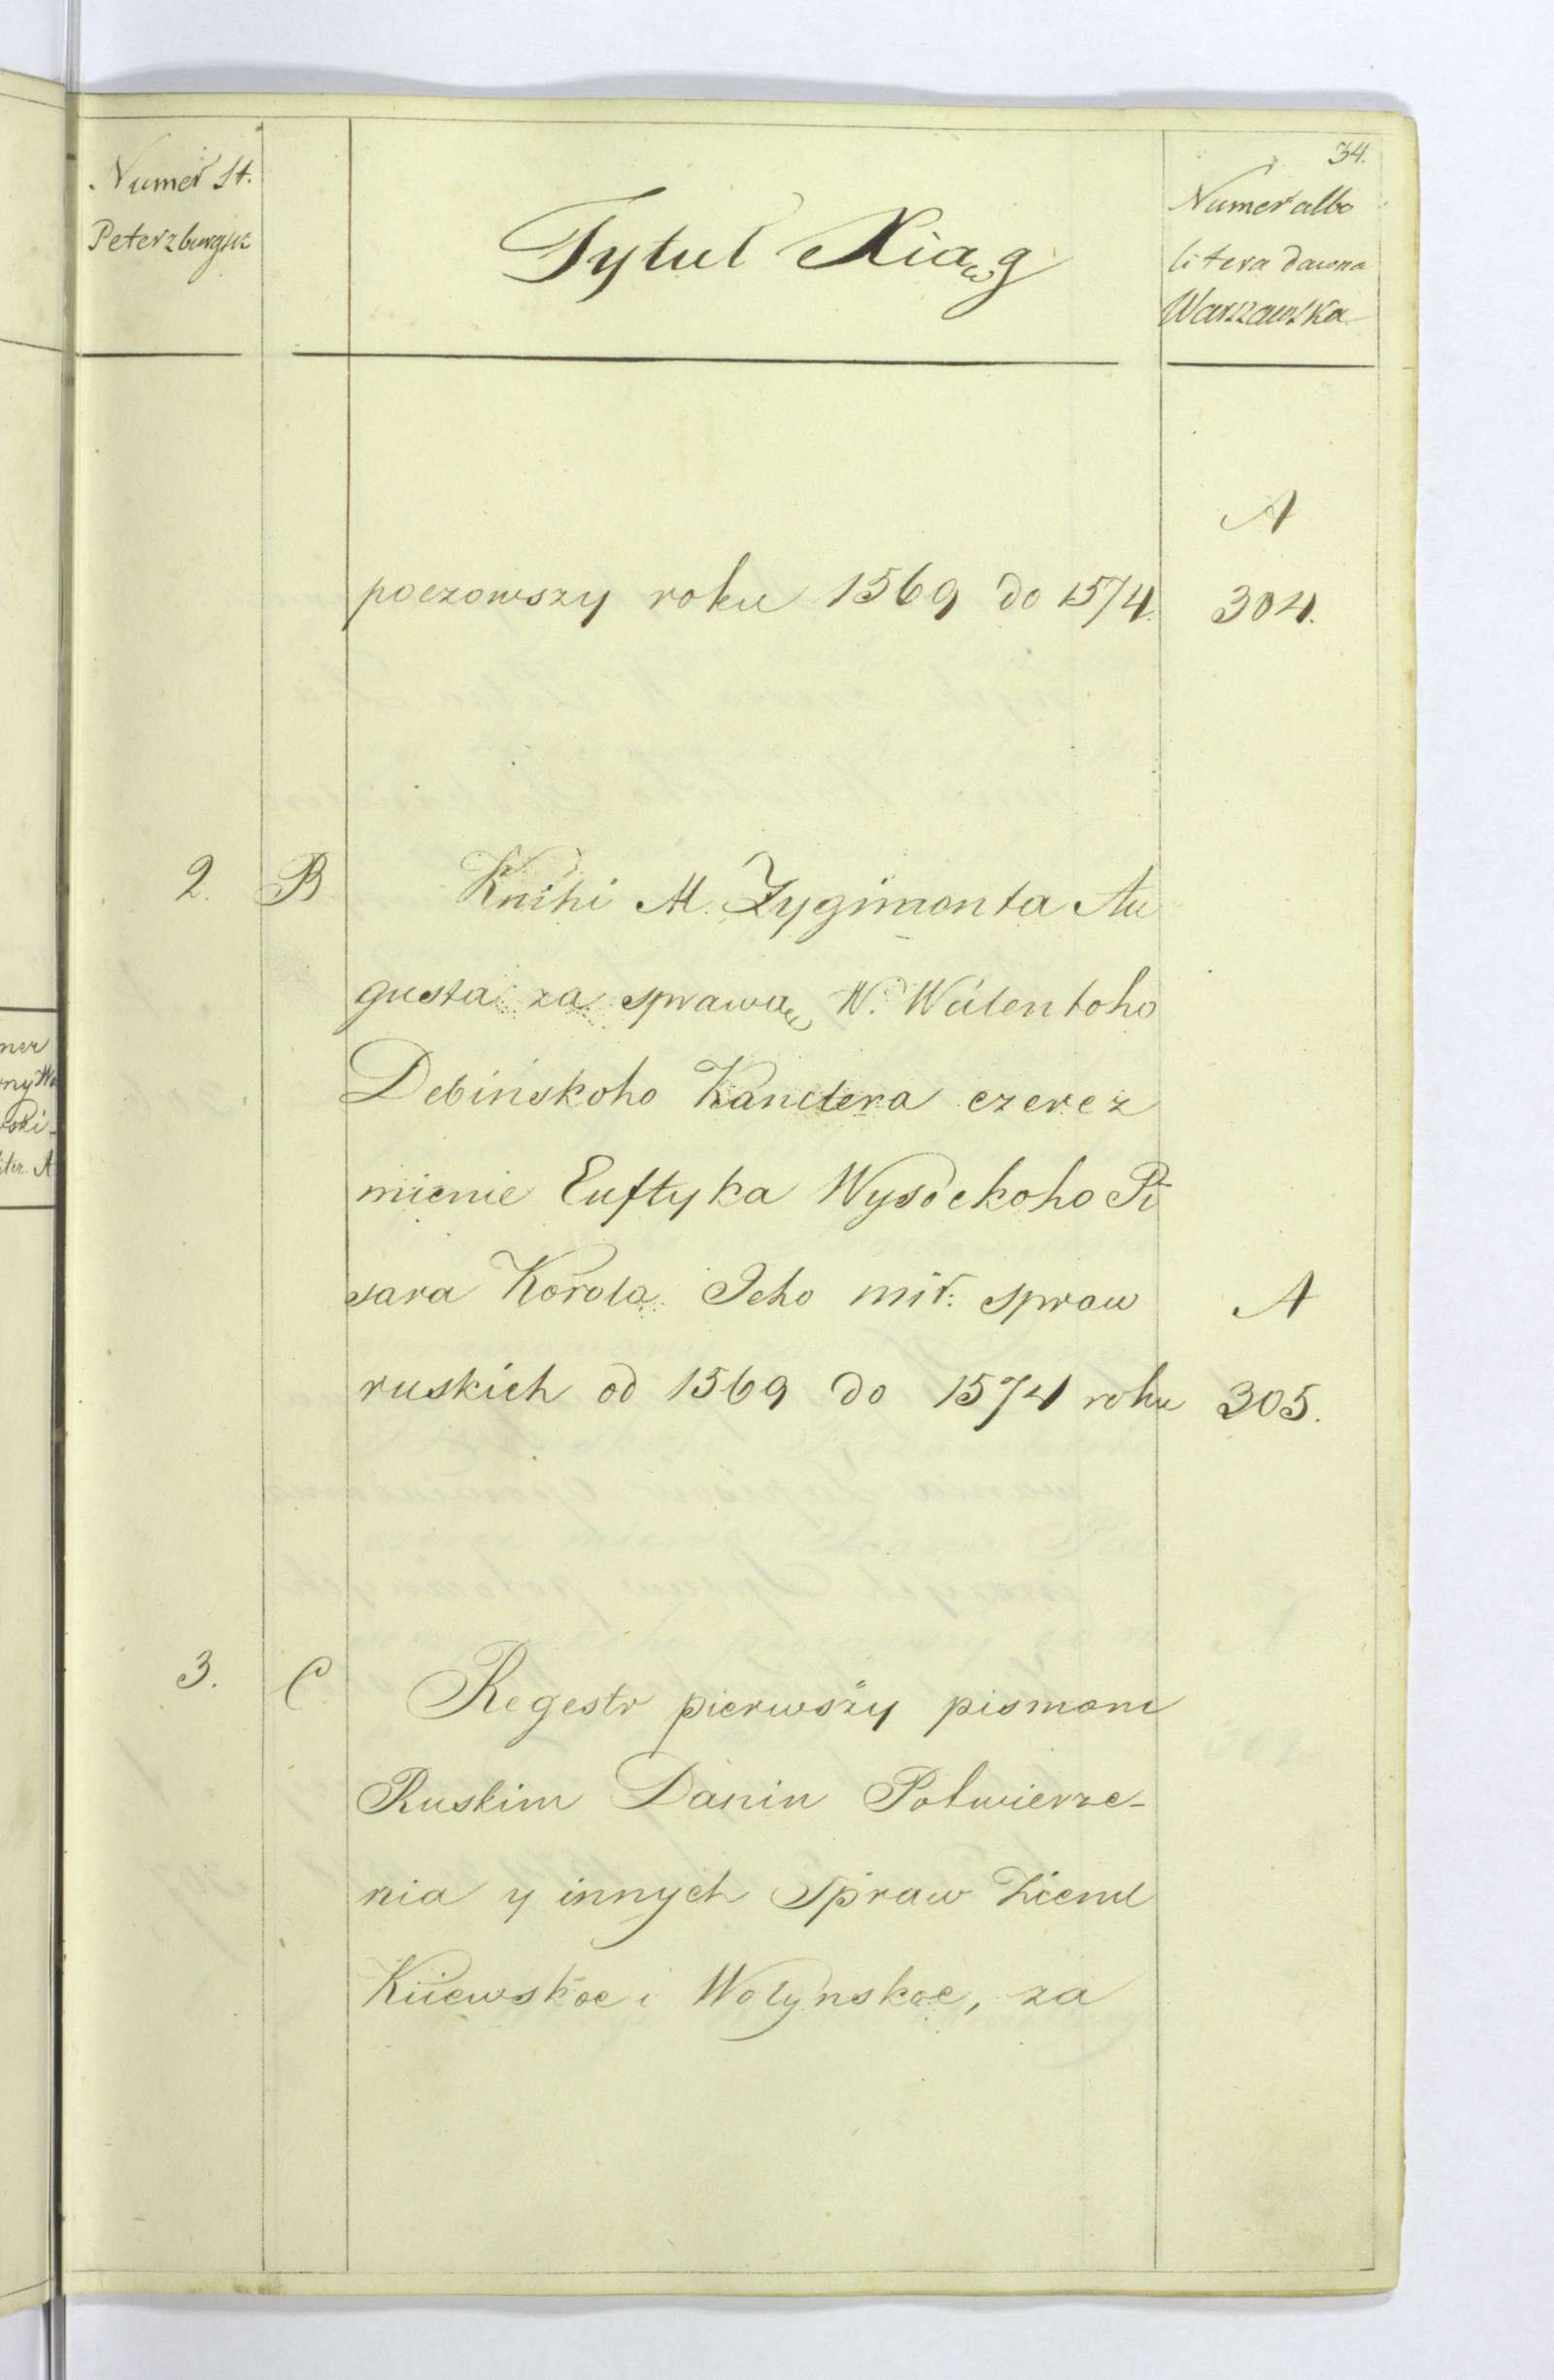 34.
Numer St.
Peterzburgsk
Tytuł Xiąg
Numer albo
litera dawna
Warszawska
A
poczowszy roku 1569 do 1574. 304.
2. B Knihi M. Zygimonta Au
gusta za sprawą W. Walentoho
Debińskoho Kanclera czerez
mienie Euftyka Wysockoho Pi
sara Korola Jeho mił: spraw A
ruskich od 1569 do 1574 roku 305.
3. C Regestr pierwszy pismom
Ruskim Danin Potwierze-
nia y innych Spraw Zieml
Kiiewskoe i Wołynskoe, za